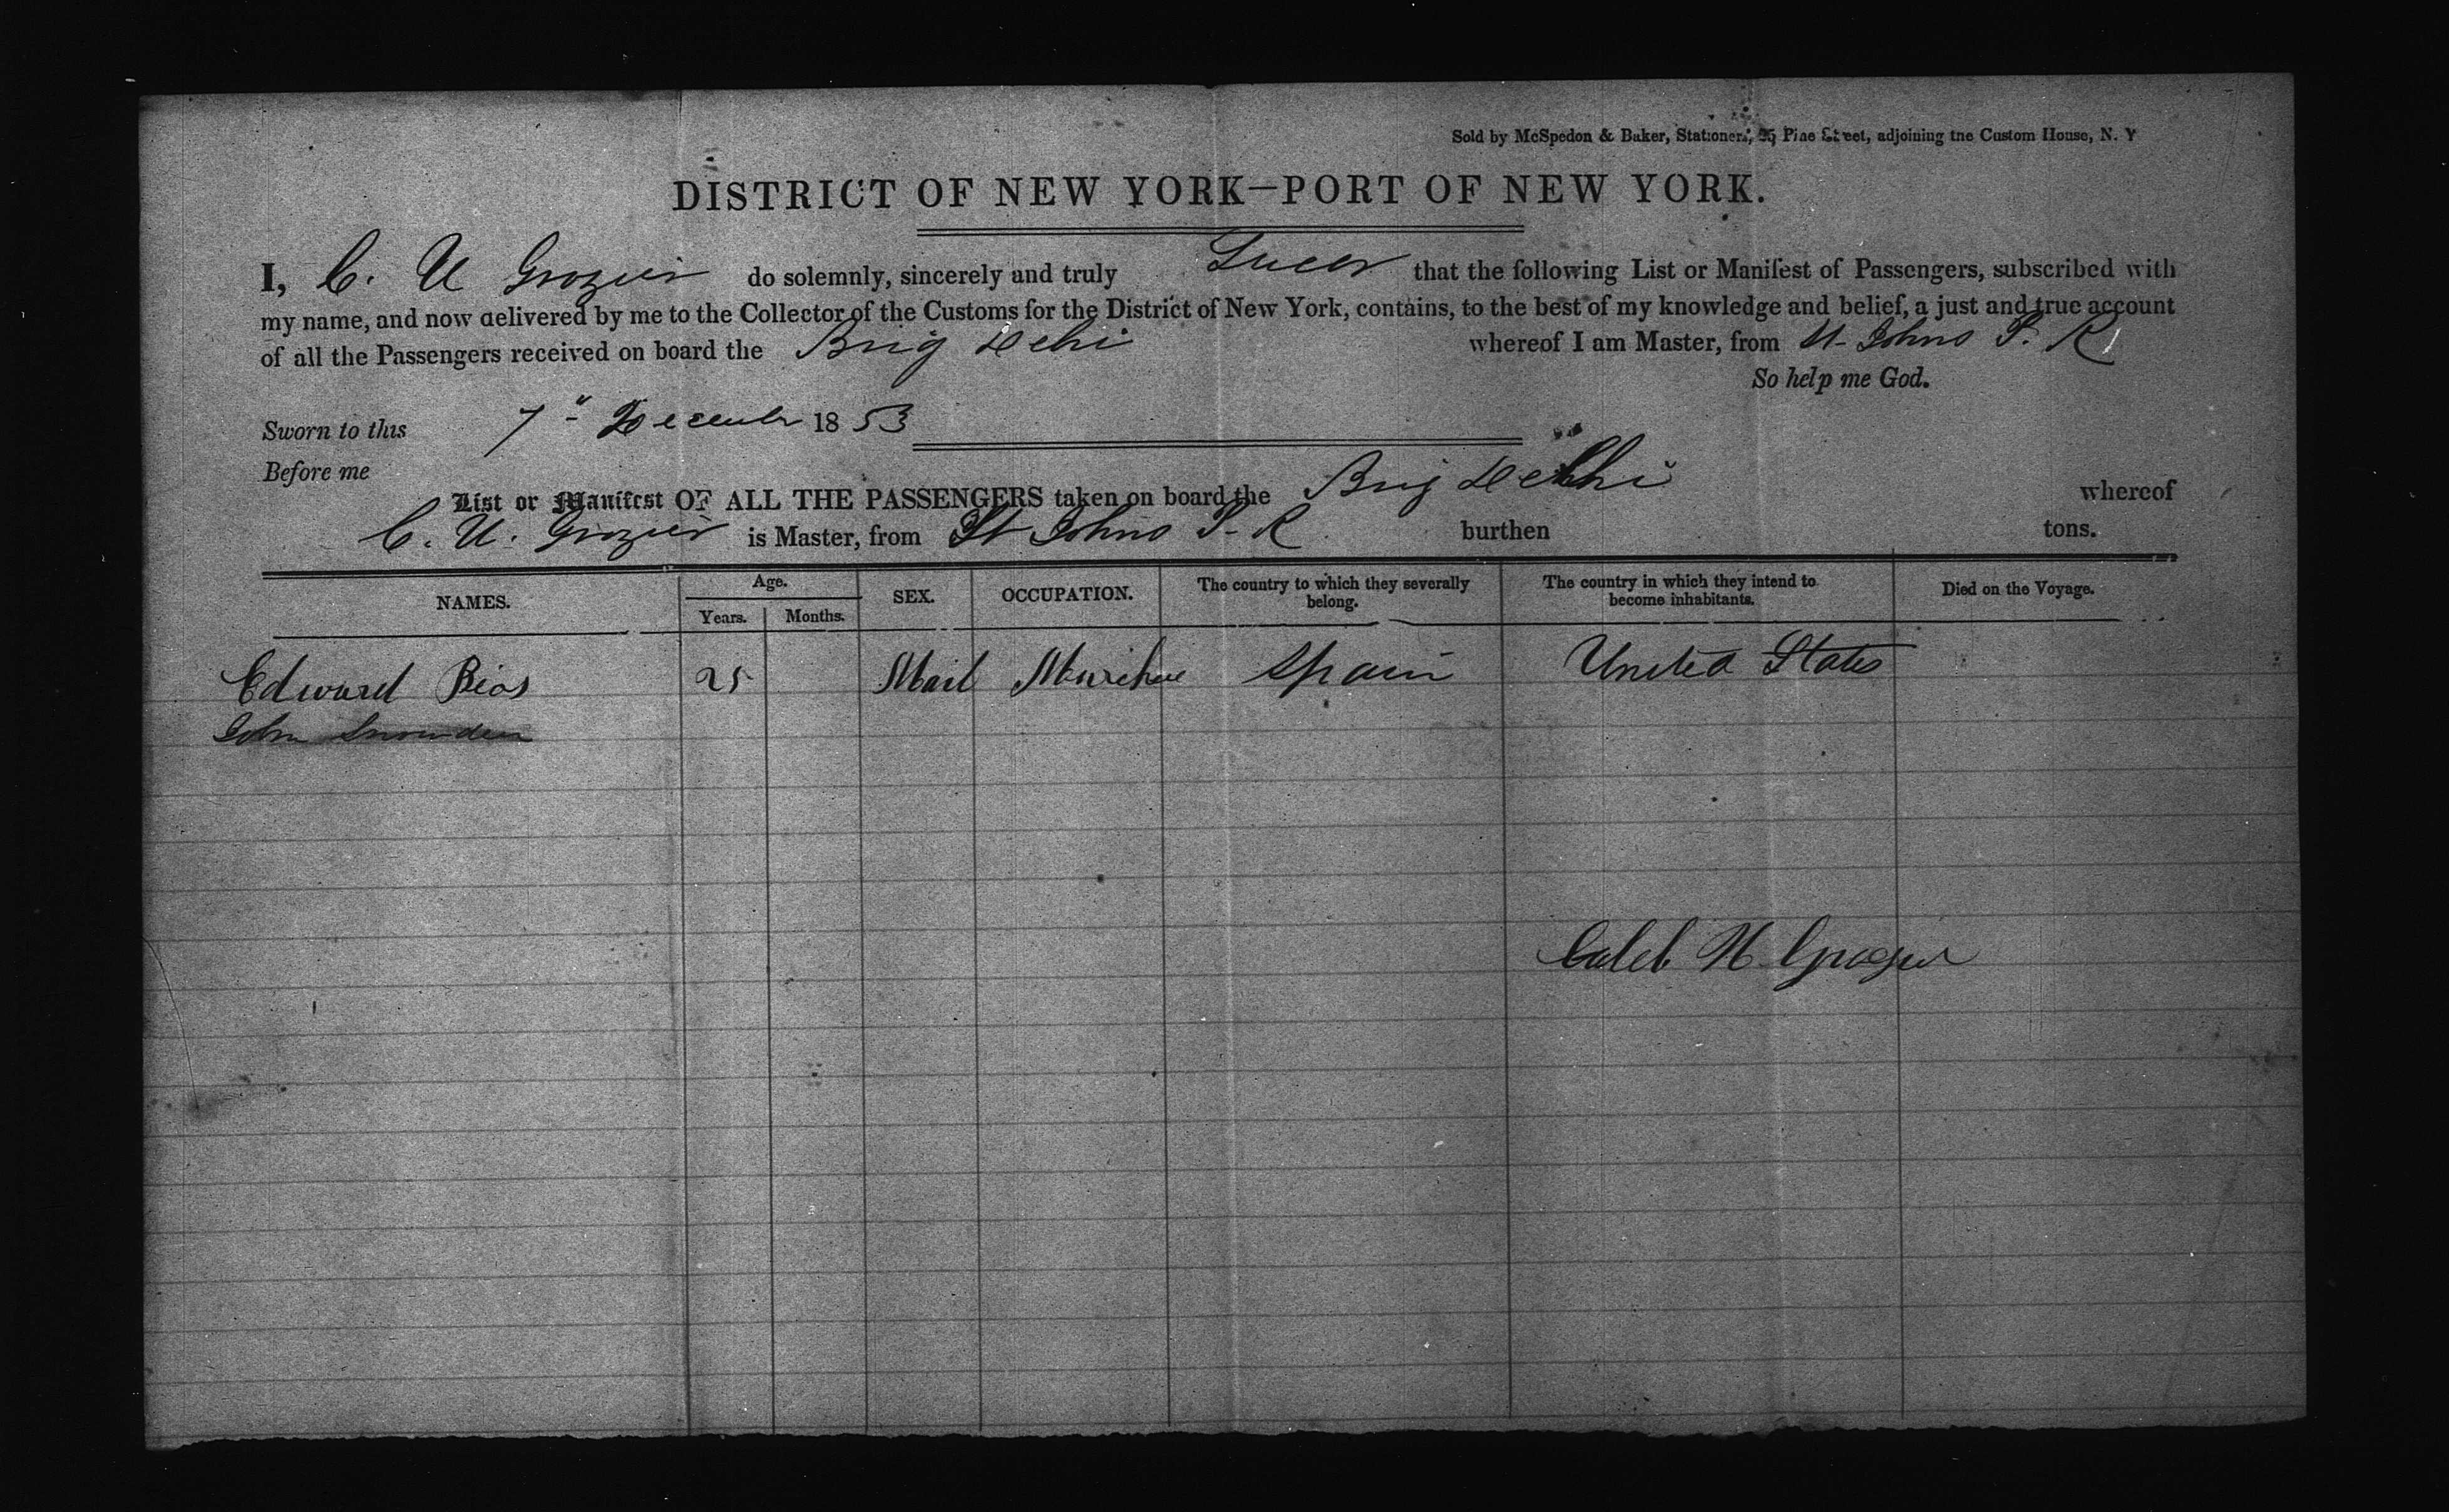 Sold by McSpedon & Baker, Stationers, 25 Pine Street, adjoining the Custom House, N. Y
DISTRICT OF NEW YORK—PORT OF NEW YORK.
I, C. N Grozier do solemnly, sincerely and truly Swear that the following List or Manifest of Passengers, subscribed with
my name, and now delivered by me to the Collector of the Customs for the District of New York, contains, to the best of my knowledge and belief, a just and true account
of all the Passengers received on board the Brig Delhi whereof I am Master, from St Johns P. R
So help me God.
Sworn to this 7" December 1853
Before me
List or Manifest OF ALL THE PASSENGERS taken on board the Brig Delhi whereof
C. N. Grozier is Master, from St Johns P. R burthen tons.
NAMES. Age. Years. Months. SEX. OCCUPATION. The country to which they severally belong. The country in which they intend to become inhabitants. Died on the Voyage.
Edward Rios 25 Mail Spain United States
John Snowden
Caleb N Grozier